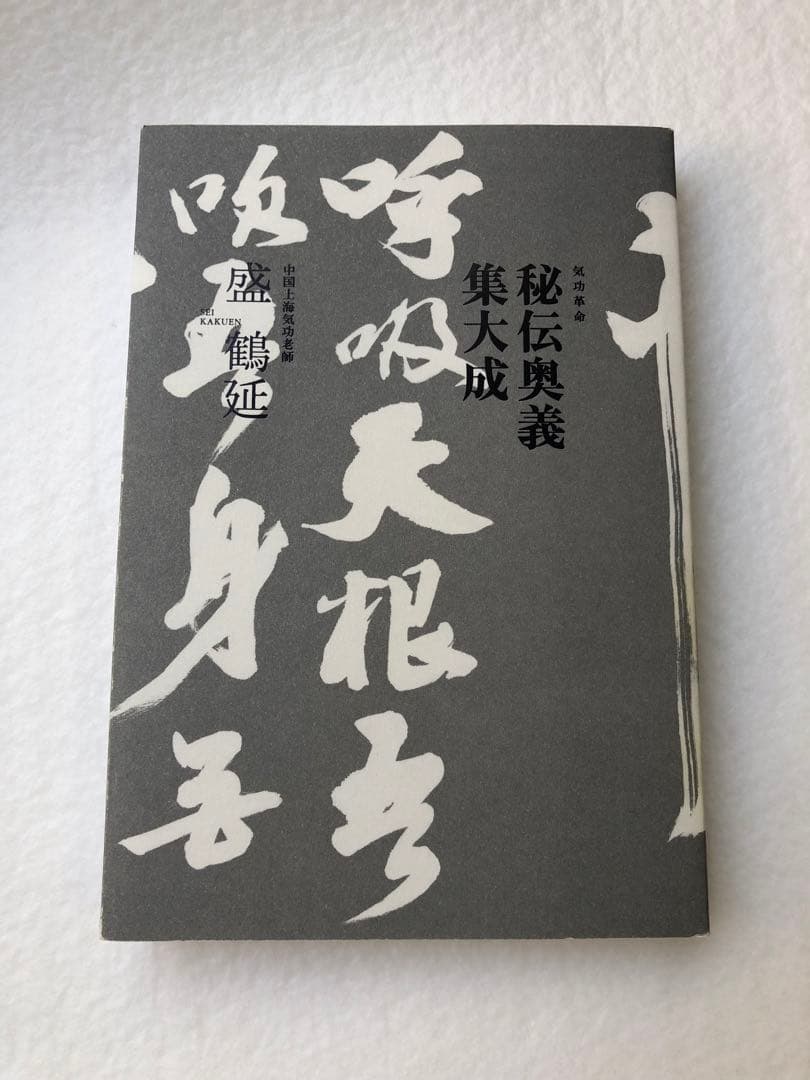 気功革命
秘伝奥義
集大成
呼吸天根
中国上海気功老師
盛 鶴延
SEI
KAKUEN
身